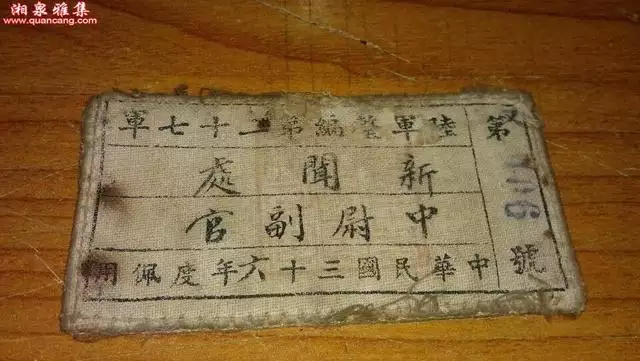 湘泉雅集
www.quancang.com
第 號
陸軍整編第二十七軍
新聞處
中尉副官
中華民國三十六年度佩用